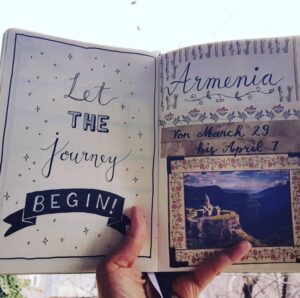 Let
THE
Journey
BEGIN!
Armenia
Von March 29
bis April 7